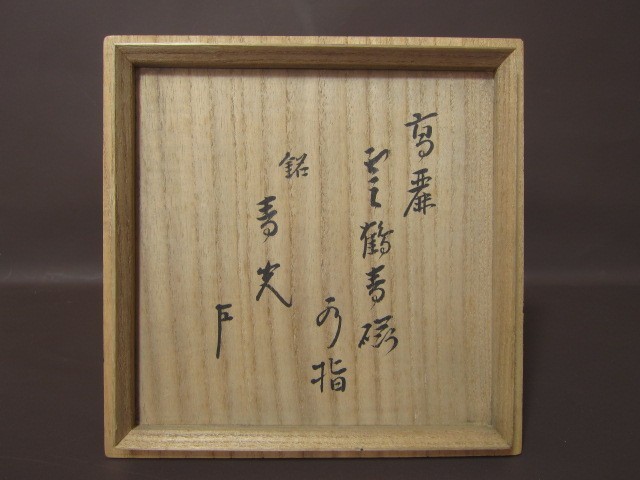 高麗
雲鶴青磁
水指
銘
青光